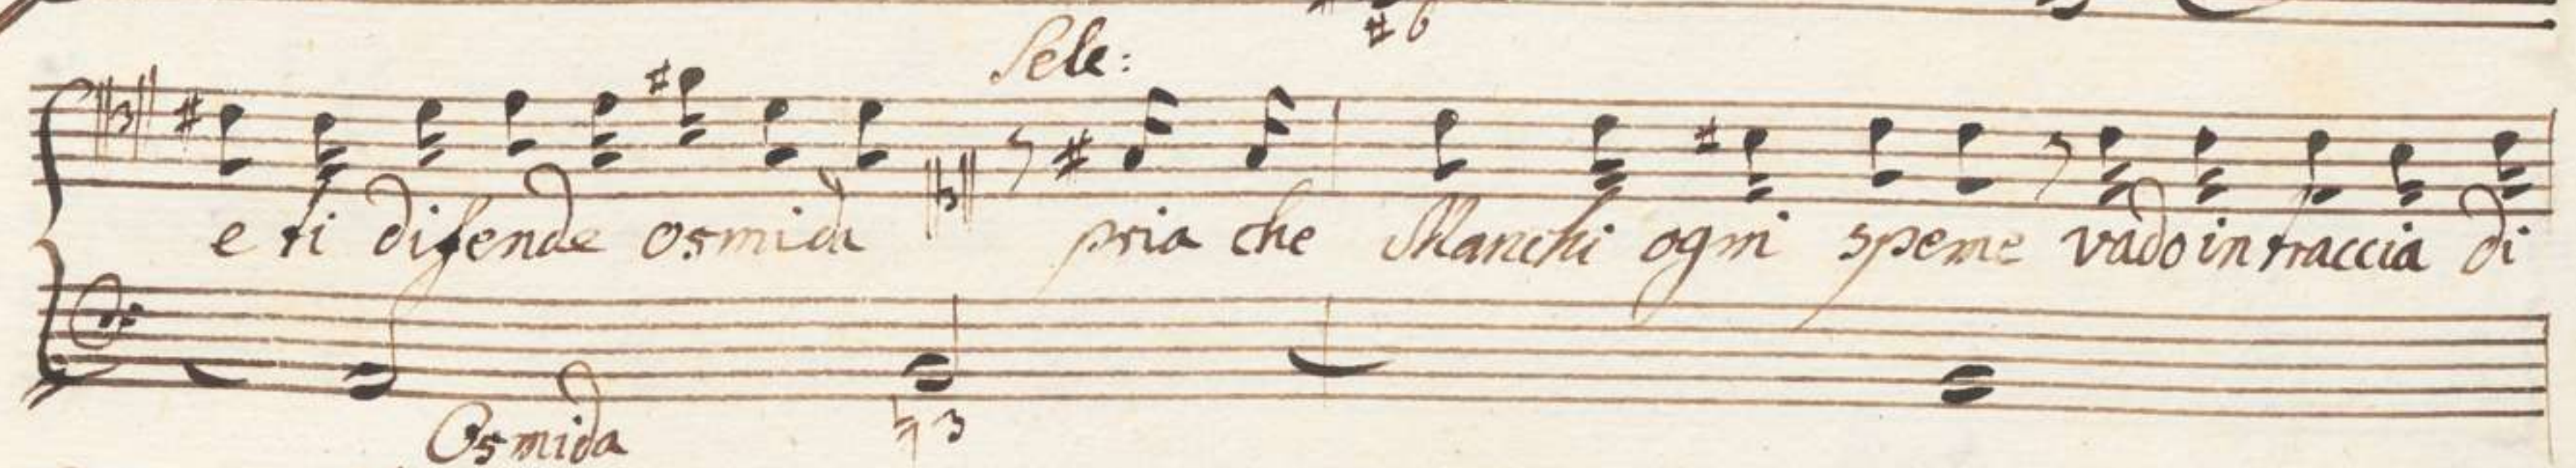 #6
Sele:
e ti difende Osmida pria che Manchi ogni speme vado in traccia di
Osmida
♮3